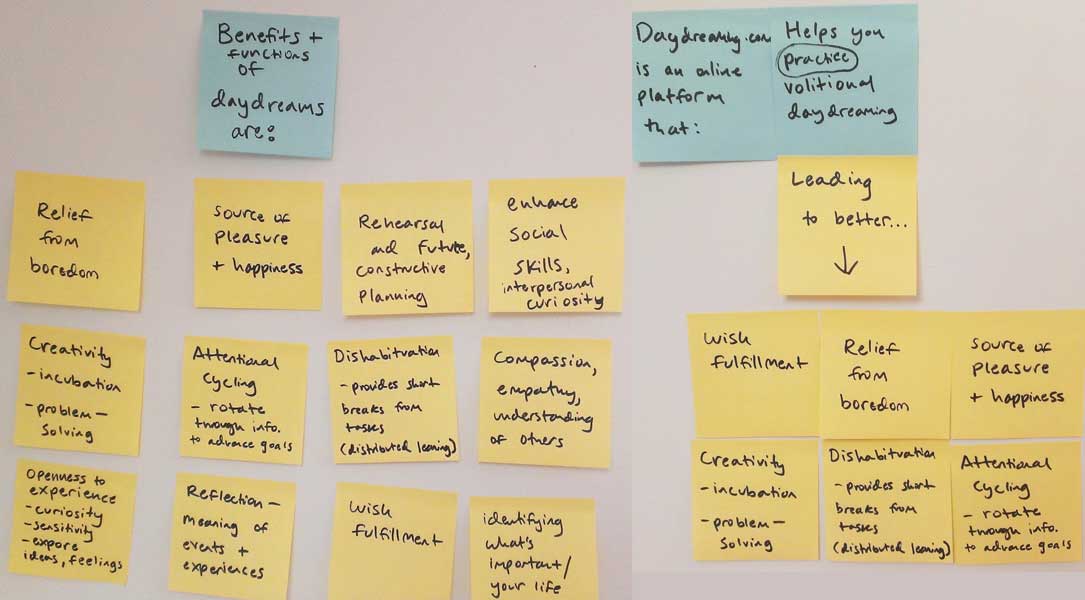 Benefits +
functions
of
daydreams
are:
Relief
from
boredom
source of
pleasure
+ happiness
Rehearsal
and future,
constructive
planning
enhance
social
skills,
interpersonal
curiosity
Creativity
- incubation
- problem -
Solving
Attentional
Cycling
- rotate
through info.
to advance goals
Dishabituation
- provides short
breaks from
tasks
(distributed learning)
Compassion,
empathy,
understanding
of others
Openness to
experience
- curiosity
- sensitivity
- expore
ideas, feelings
Reflection -
meaning of
events +
experiences
Wish
fulfillment
identifying
what's
important/
your life
Daydreaming.com
is an online
platform
that:
Helps you
practice
volitional
daydreaming
Leading
to better...
↓
Wish
fulfillment
Relief
from
boredom
source of
pleasure
+ happiness
Creativity
- incubation
- problem -
Solving
Dishabituation
- provides short
breaks from
tasks
(distributed learning)
Attentional
Cycling
- rotate
through info.
to advance goals